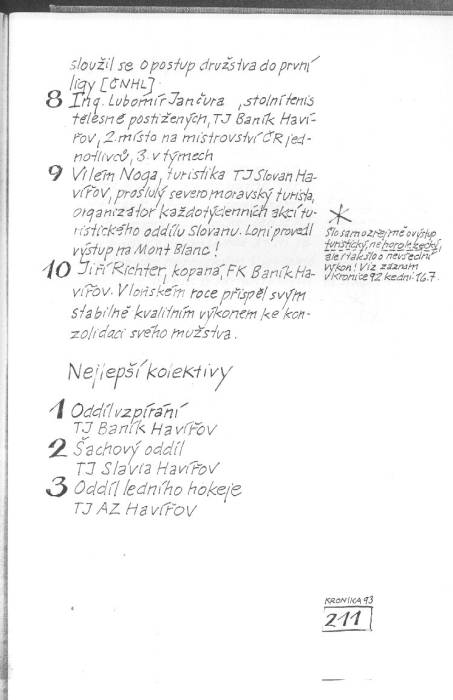 sloužil se o postup družstva do první
ligy [ČNHL]
8 Ing. Lubomír Jančura, stolní tenis
tělesně postižených, TJ Baník Haví-
řov, 2. místo na mistrovství ČR jed-
notlivců, 3. v týmech
9 Vilém Noga, turistika TJ Slovan Ha-
vířov, proslulý severomoravský turista,
organizátor každotýdenních akcí tu-
ristického oddílu Slovanu. Loni provedl
výstup na Mont Blanc!
10 Jiří Richter, kopaná, FK Baník Ha-
vířov. V loňském roce přispěl svým
stabilně kvalitním výkonem ke kon-
zolidaci svého mužstva.
*
Šlo samozřejmě o výstup
turistický, ne horolezecký,
ale i tak šlo o nevšední
výkon! Viz záznam
v kronice 92 ke dni 16.7.
Nejlepší kolektivy
1 Oddíl vzpírání
TJ Baník Havířov
2 Šachový oddíl
TJ Slavia Havířov
3 Oddíl ledního hokeje
TJ AZ Havířov
KRONIKA 93
211